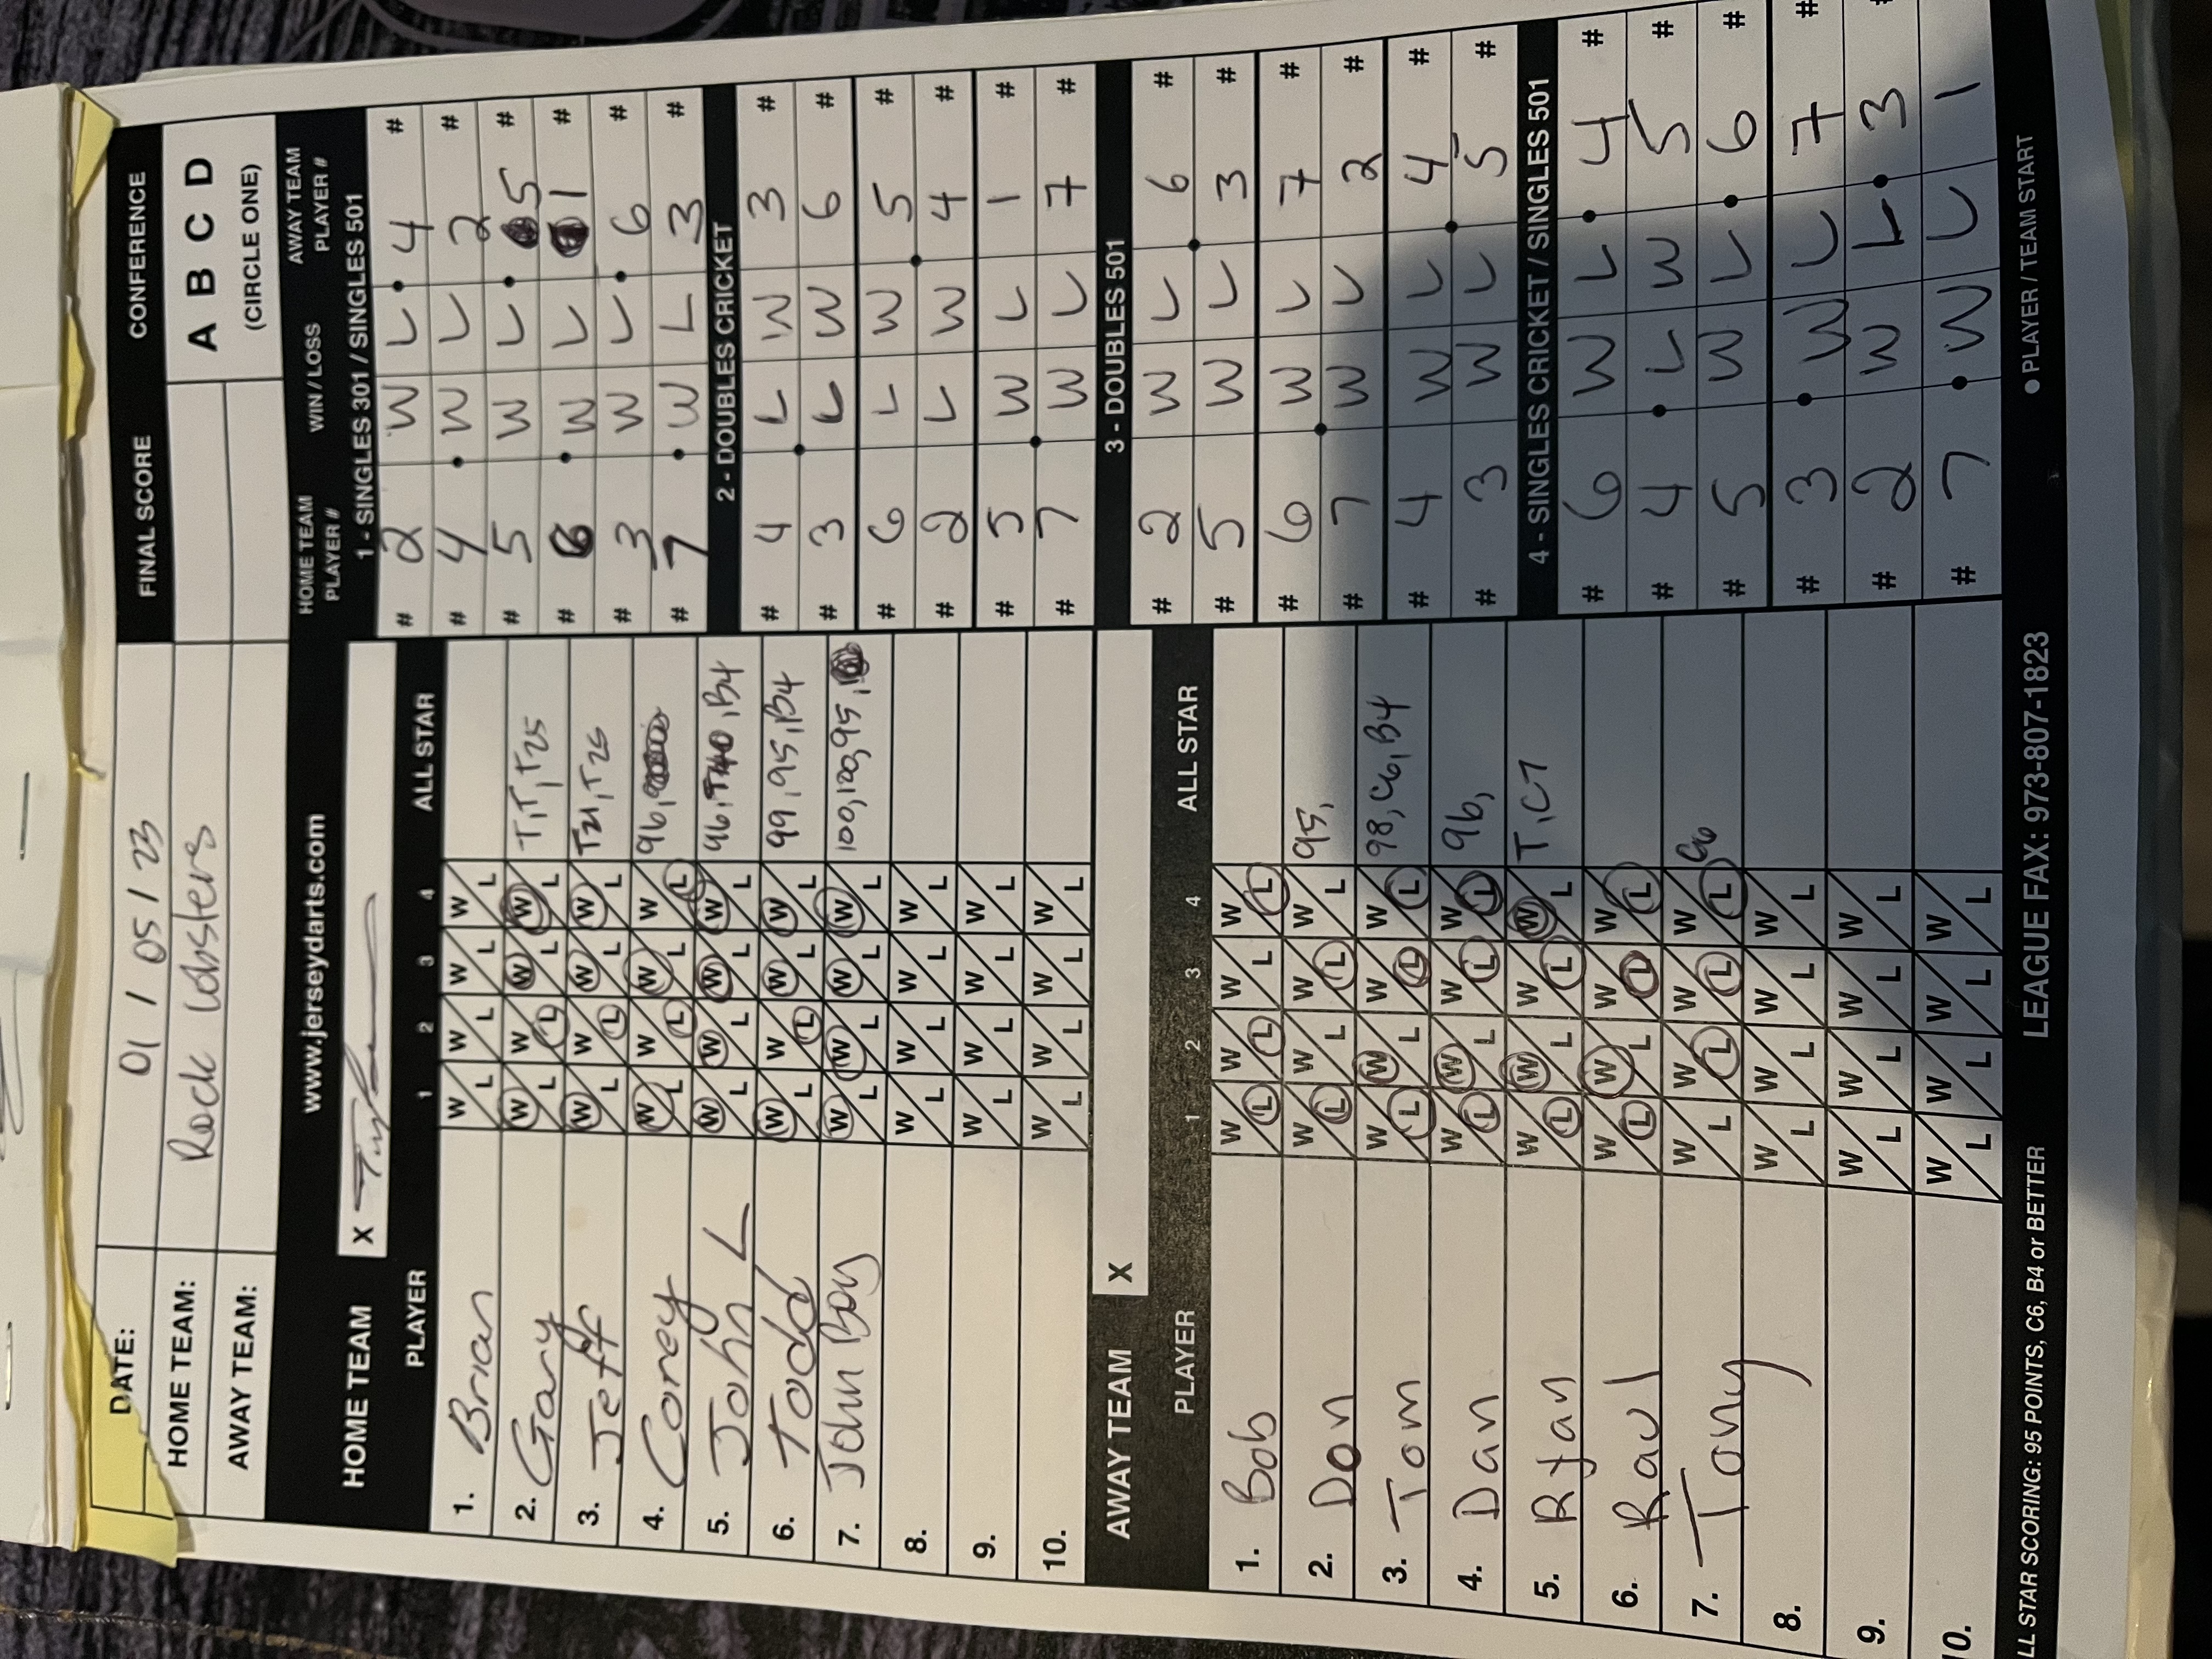 DATE: 01 / 05 / 23 FINAL SCORE CONFERENCE
HOME TEAM: Rock Lobsters A B C D
AWAY TEAM: (CIRCLE ONE)
www.jerseydarts.com
HOME TEAM X
PLAYER 1 2 3 4 ALL STAR
1. Brian W L W L W L W L
2. Gary W L W L W L W L T, T, T25
3. Jeff W L W L W L W L T21, T25
4. Corey W L W L W L W L 96,
5. John L W L W L W L W L 96, B4
6. Todd W L W L W L W L 99, 95, B4
7. John Boy W L W L W L W L 100, 120, 95,
8. W L W L W L W L
9. W L W L W L W L
10. W L W L W L W L
AWAY TEAM X
PLAYER 1 2 3 4 ALL STAR
1. Bob W L W L W L W L
2. Don W L W L W L W L 95,
3. Tom W L W L W L W L 98, C6, B4
4. Dan W L W L W L W L 96,
5. Ryan W L W L W L W L T, C7
6. Raul W L W L W L W L
7. Tony W L W L W L W L C6
8. W L W L W L W L
9. W L W L W L W L
0. W L W L W L W L
HOME TEAM PLAYER # WIN / LOSS AWAY TEAM PLAYER #
1 - SINGLES 301 / SINGLES 501
# 2 W L 4 #
# 4 W L 2 #
# 5 W L 5 #
# 6 W L 1 #
# 3 W L 6 #
# 7 W L 3 #
2 - DOUBLES CRICKET
# 4 L W 3 #
# 3 L W 6 #
# 6 L W 5 #
# 2 L W 4 #
# 5 W L 1 #
# 7 W L 7 #
3 - DOUBLES 501
# 2 W L 6 #
# 5 W L 3 #
# 6 W L 7 #
# 7 W L 2 #
# 4 W L 4 #
# 3 W L 5 #
4 - SINGLES CRICKET / SINGLES 501
# 6 W L 4 #
# 4 L W 5 #
# 5 W L 6 #
# 3 W L 7 #
# 2 W L 3 #
# 7 W L 1
LL STAR SCORING: 95 POINTS, C6, B4 or BETTER LEAGUE FAX: 973-807-1823 ● PLAYER / TEAM START